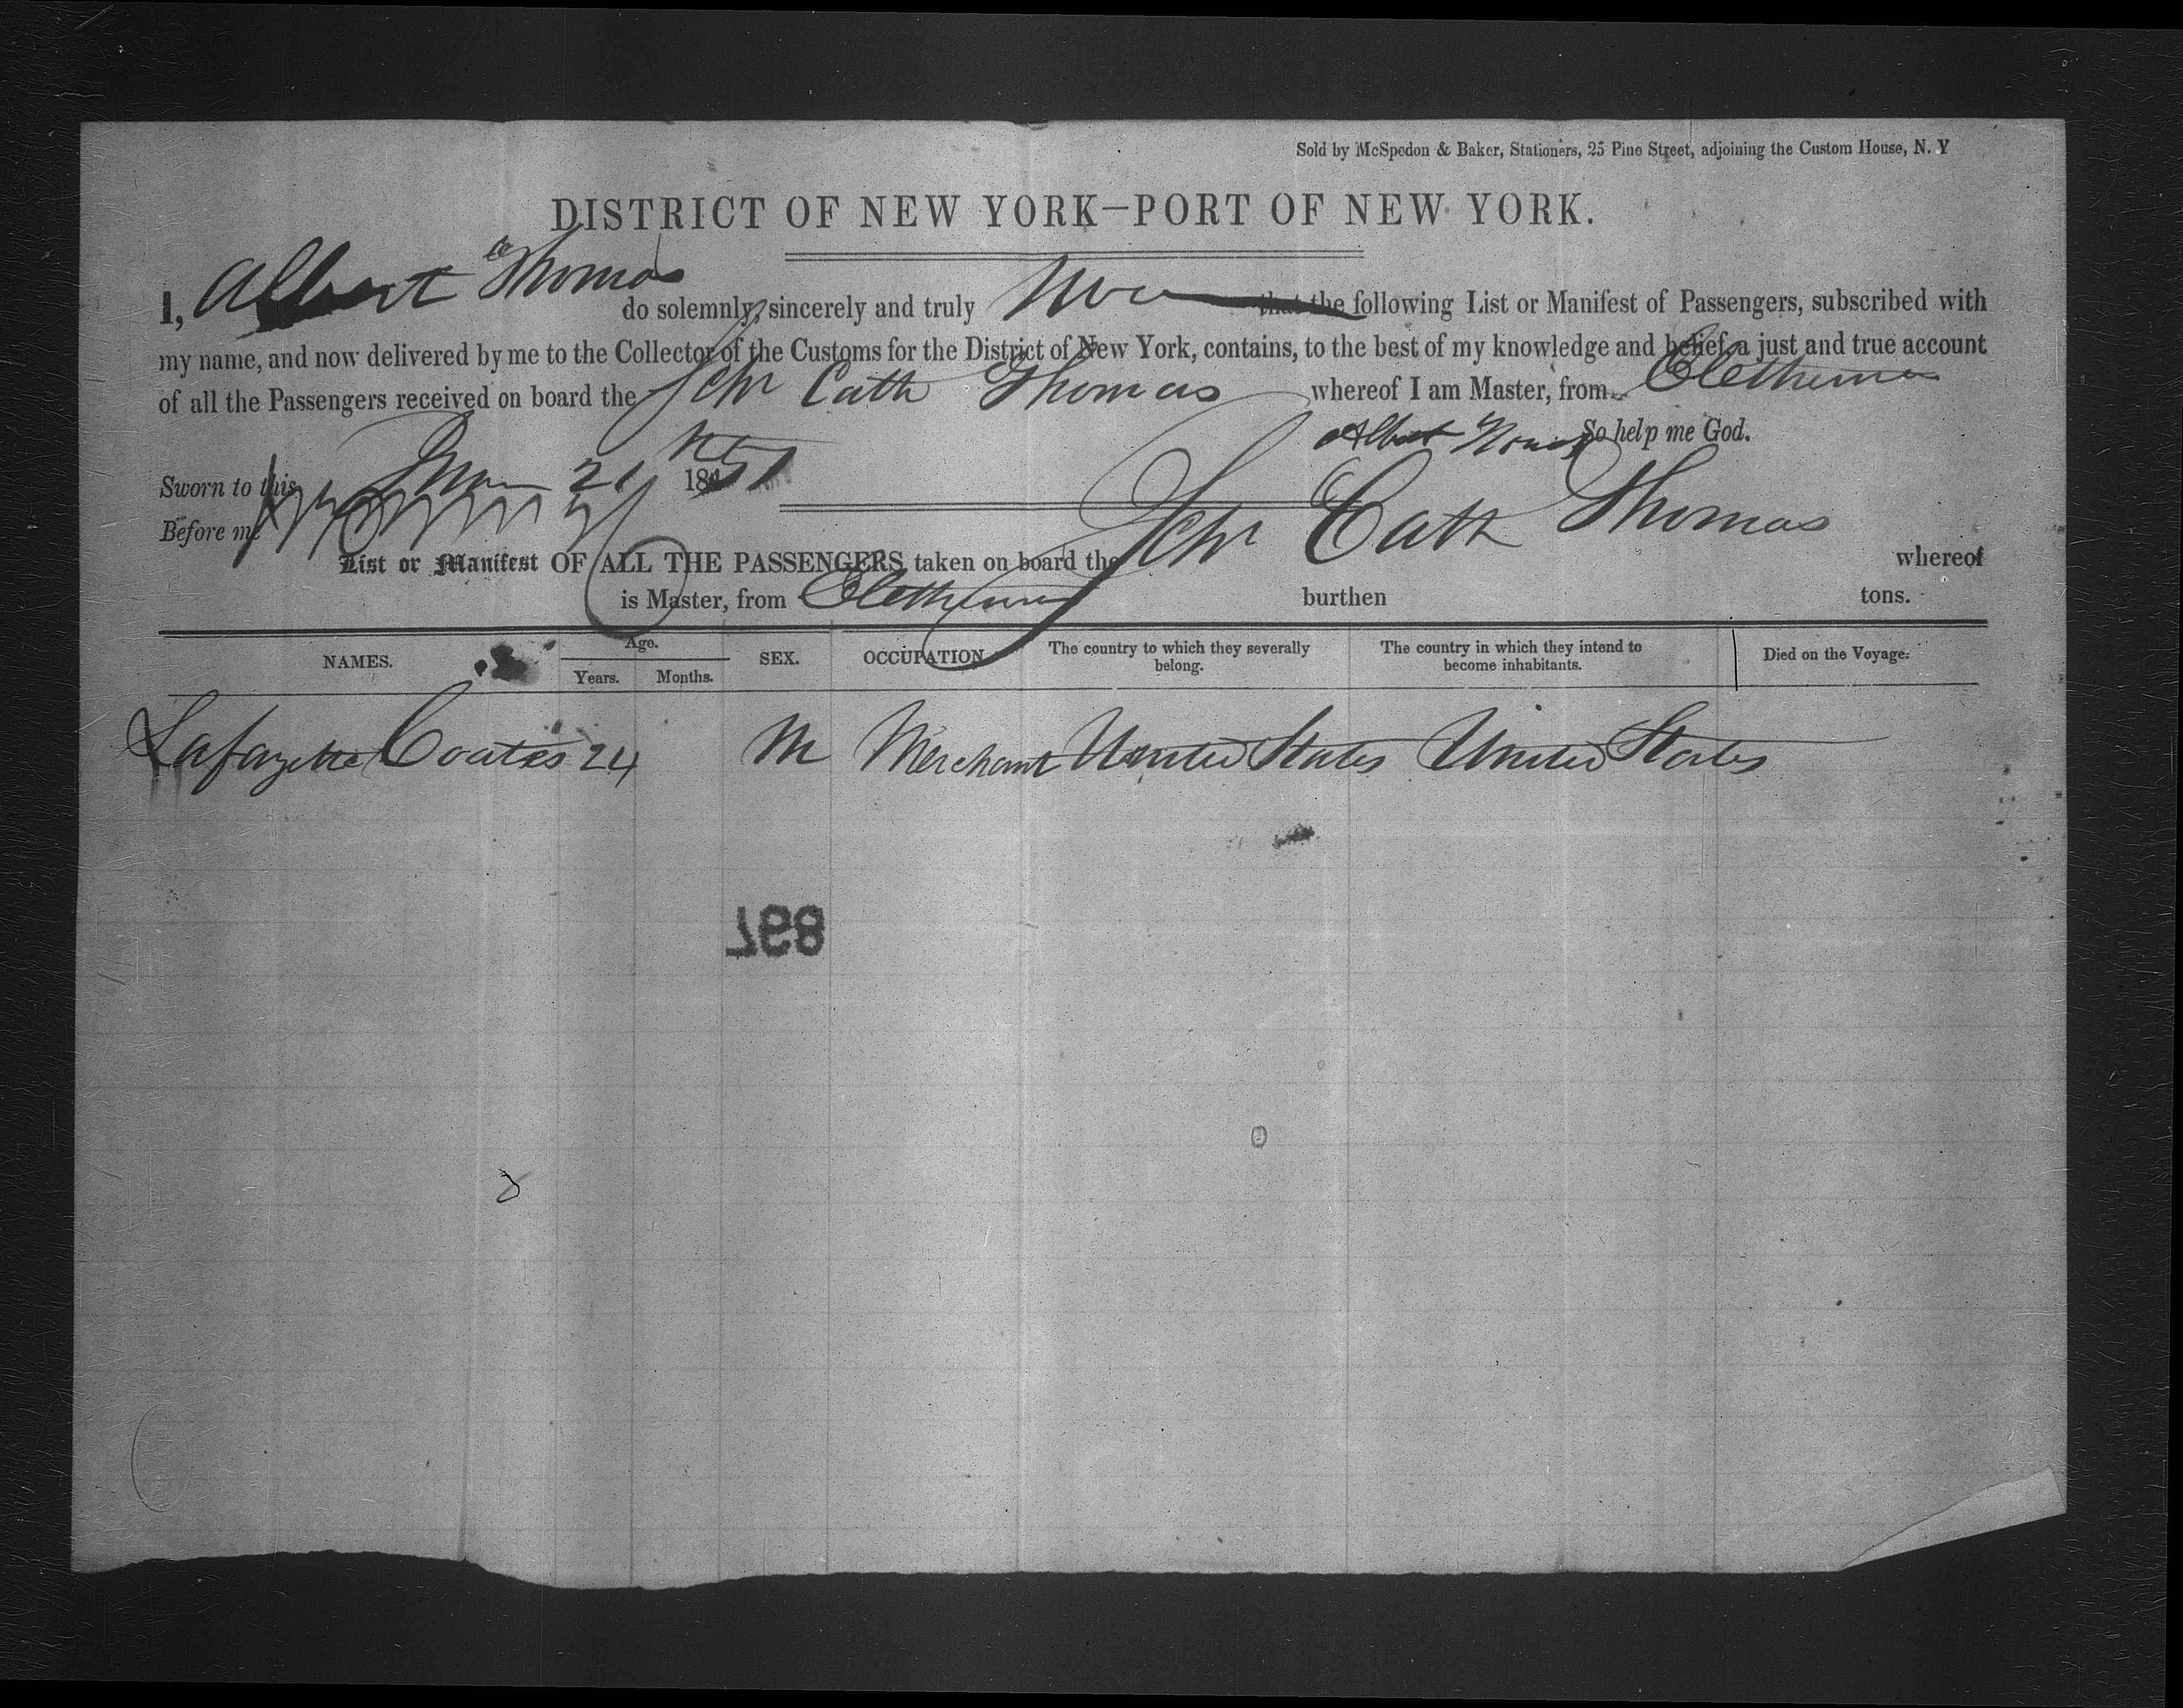 Sold by McSpedon & Baker, Stationers, 25 Pine Street, adjoining the Custom House, N. Y
DISTRICT OF NEW YORK—PORT OF NEW YORK.
I, Albert Thomas do solemnly, sincerely and truly that the following List or Manifest of Passengers, subscribed with
my name, and now delivered by me to the Collector of the Customs for the District of New York, contains, to the best of my knowledge and belief, a just and true account
of all the Passengers received on board the Schr Cath Thomas whereof I am Master, from Eletheura
Albert Thomas So help me God.
Sworn to this 21 1851
Before me
List or Manifest OF ALL THE PASSENGERS taken on board the Schr Cath Thomas whereof
is Master, from Eletheura burthen tons.
NAMES. Age. Years. Months. SEX. OCCUPATION The country to which they severally belong. The country in which they intend to become inhabitants. Died on the Voyage.
Lafayette Coates 24 M Merchant United States United States
897